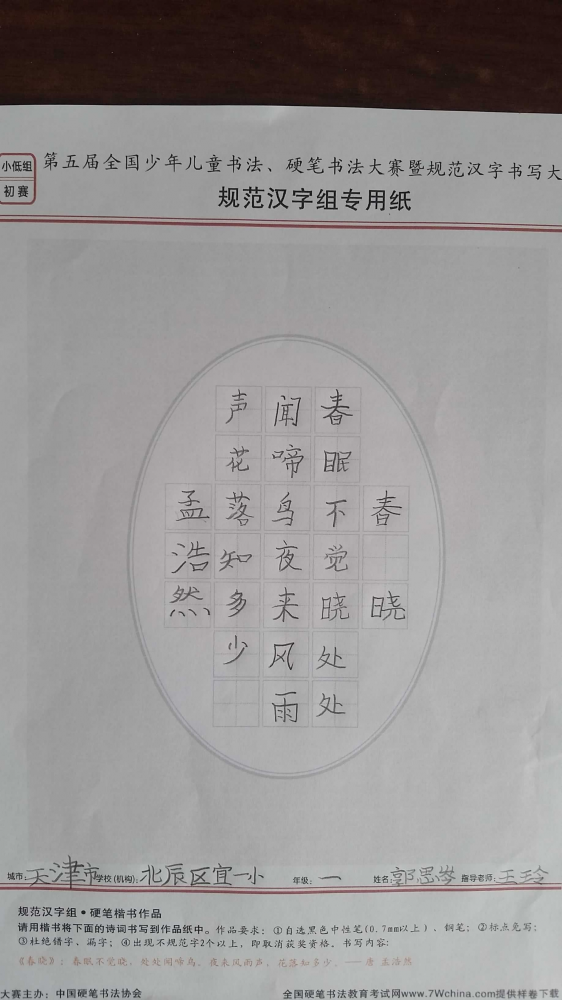 小低组
初赛
第五届全国少年儿童书法、硬笔书法大赛暨规范汉字书写大
规范汉字组专用纸
春晓
春眠不觉晓处处
闻啼鸟夜来风雨
声花落知多少
孟浩然
城市：天津市 学校(机构)：北辰区宜一小 年级：一 姓名：郭思 指导老师：王玲
规范汉字组•硬笔楷书作品
请用楷书将下面的诗词书写到作品纸中。作品要求：①自选黑色中性笔(0.7mm以上)、钢笔；②标点免写；
③杜绝错字、漏字；④出现不规范字2个以上，即取消获奖资格。书写内容：
《春晓》：春眠不觉晓，处处闻啼鸟。夜来风雨声，花落知多少。——唐 孟浩然
大赛主办：中国硬笔书法协会 全国硬笔书法教育考试网www.7Wchina.com提供样卷下载